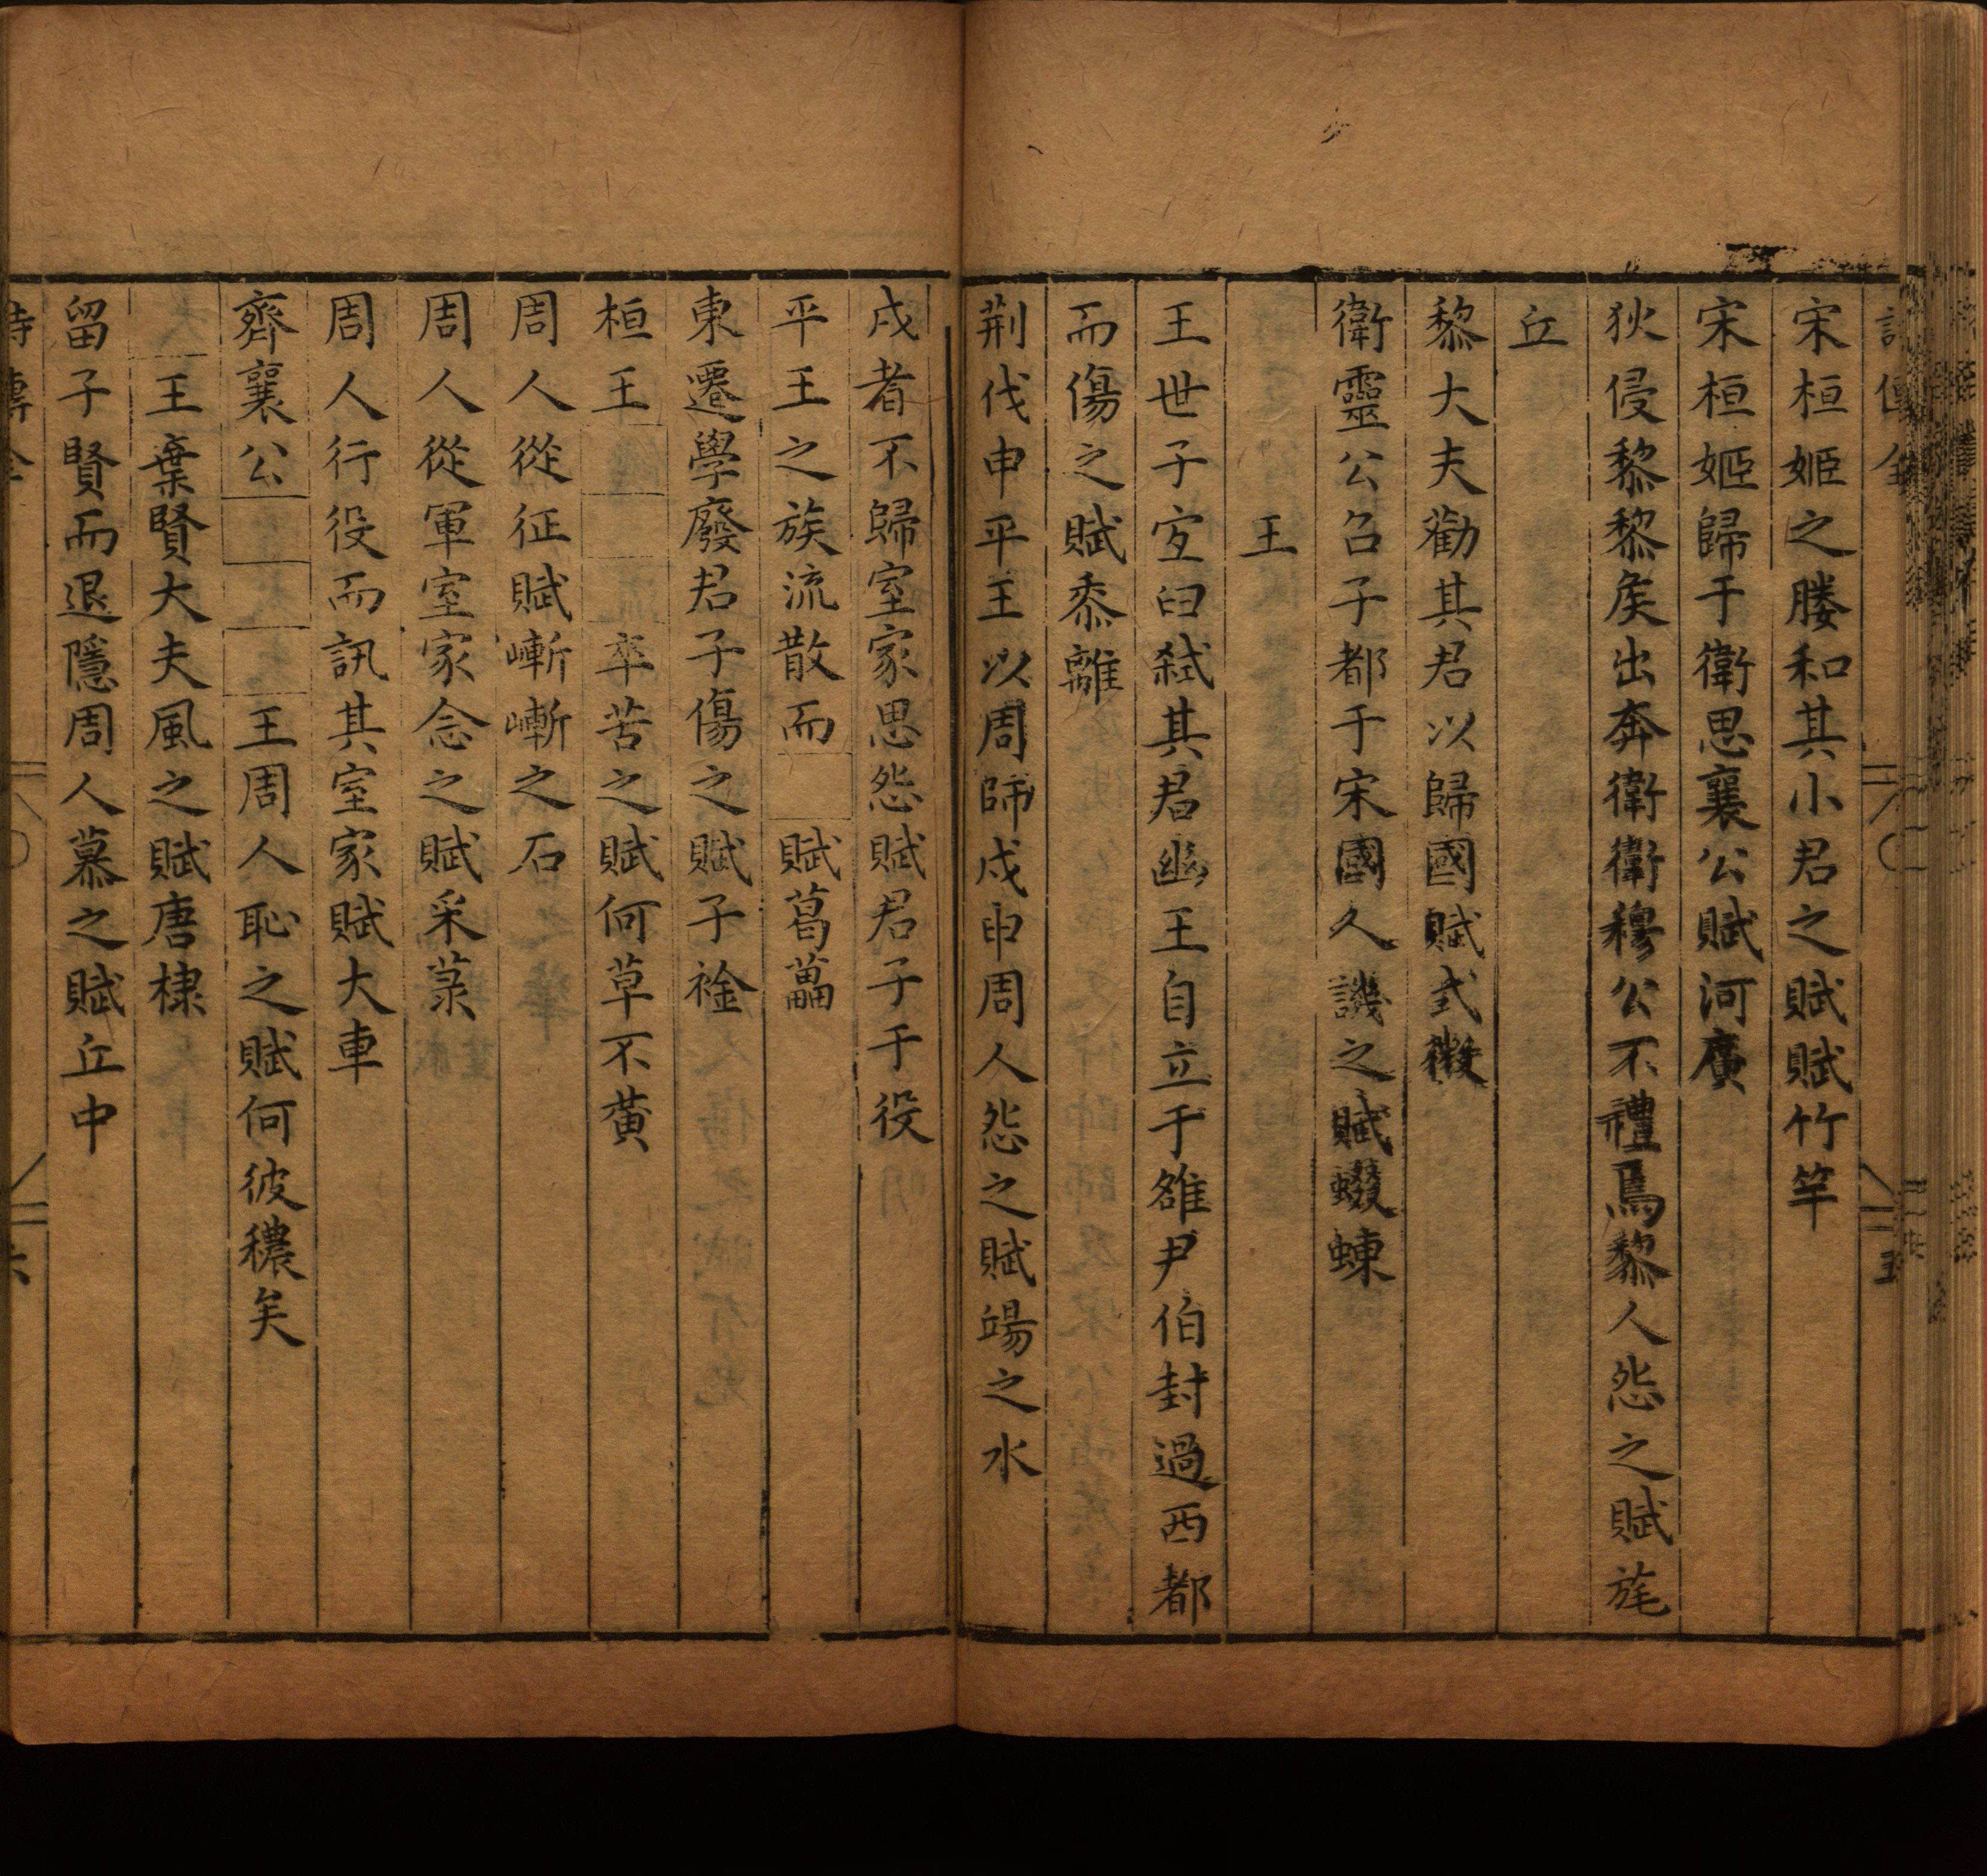 宋桓姬之媵和其小君之賦賦竹竿
宋桓姬歸于衛思襄公賦河廣
狄侵黎黎矦出奔衛衛穆公不禮焉黎人怨之賦旄
丘
黎大夫勸其君以歸國賦式微
衛靈公召子都于宋國人譏之賦蝃蝀
王
王世子宜臼弒其君幽王自立于雒尹伯封過西都
而傷之賦黍離
荆伐申平王以周師戍申周人怨之賦昜之水
戍者不歸室家思怨賦君子于役
平王之族流散而 賦葛藟
東遷學廢君子傷之賦子衿
桓王 卒苦之賦何草不黃
周人從征賦嶃嶃之石
周人從軍室家念之賦采菉
周人行役而訊其室家賦大車
齊襄公 王周人恥之賦何彼穠矣
王棄賢大夫風之賦唐棣
留子賢而退隱周人慕之賦丘中